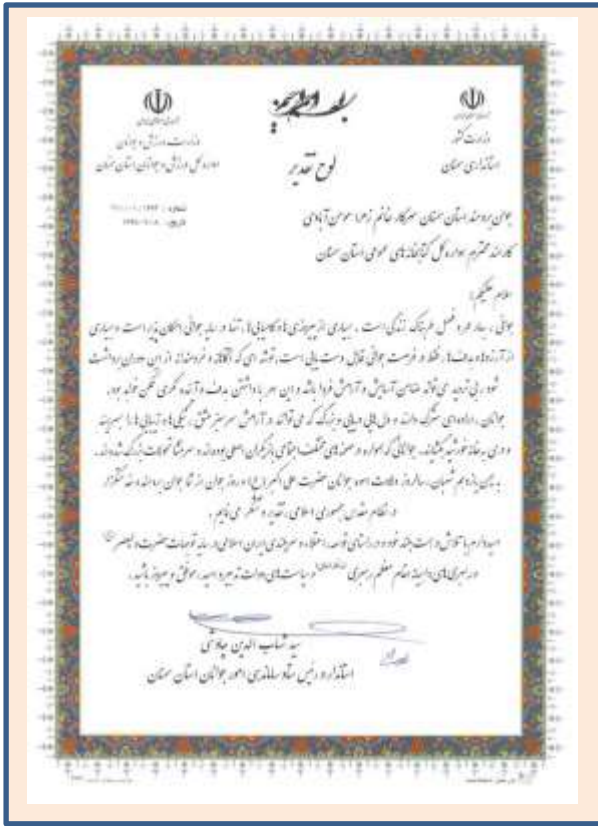 وزارت کشور
استانداری سمنان
وزارت ورزش و جوانان
اداره کل ورزش و جوانان استان سمنان
لوح تقدیر
جوان برومند استان سمنان سرکار خانم زهرا مومن آبادی
کارمند محترم اداره کل کتابخانه های عمومی استان سمنان
سلام علیکم؛
جوانی، بهار عمر و فصل طربناک زندگی است، بسیاری از پیروزی ها و کامیابی ها، تنها در سایه جوانی امکان پذیر است و بسیاری
از آرزوها و هدف ها، فقط در فرصت جوانی قابل دست یابی است، توشه ای که آگاهانه و خردمندانه از این دوران برداشت
شود، بی تردید می تواند ضامن آسایش و آرامش فردا باشد و این امر با داشتن هدف و آینده نگری ممکن خواهد بود.
جوانان، اراده ای سترگ دارند و دل هایی دریایی و بزرگ که می توانند در آرامش سرسبز عشق، نیکی ها و زیبایی ها را
به خانه خورشید بکشانند. جوانانی که همواره در صحنه های مختلف اجتماعی بازیگران اصلی بوده اند و سرمنشا تحولات بزرگ شده اند.
یازدهم شعبان، سالروز ولادت اسوه جوانان حضرت علی اکبر (ع) و روز جوان از شما جوان
در نظام مقدس جمهوری اسلامی، تقدیر و تشکر می نمایم.
امیدوارم با تلاش و همت بلند خود و در راستای توسعه، اعتلاء و سربلندی ایران اسلامی در سایه توجهات حضرت ولیعصر
و رهبری های داهیانه مقام معظم رهبری و سیاست های دولت تدبیر و امید، موفق و پیروز باشید.
سید شهاب الدین چاوشی
استاندار و رئیس ستاد ساماندهی امور جوانان استان سمنان